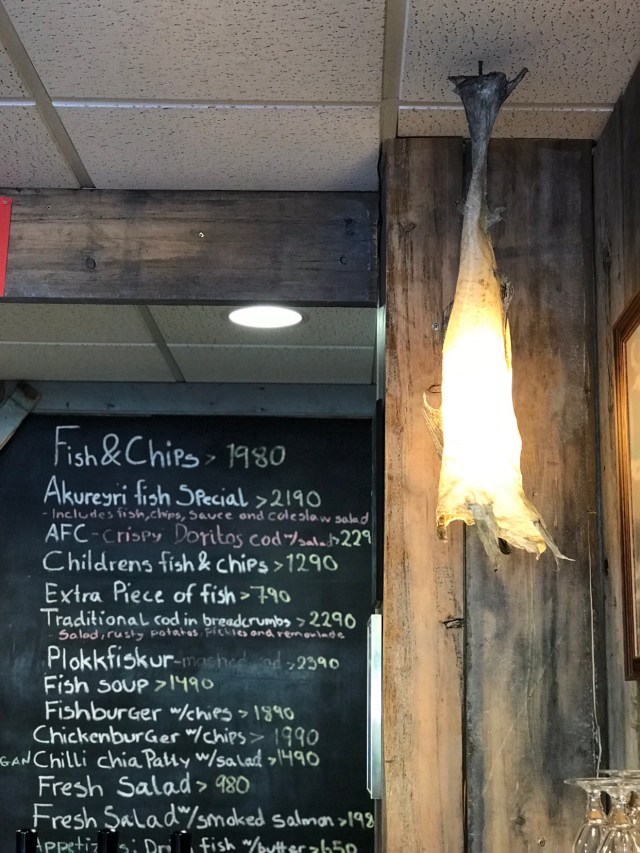 Fish & Chips > 1980
Akureyri fish Special > 2190
- Includes fish, chips, sauce and coleslaw salad
AFC - crispy Doritos cod w/salad > 229
Childrens fish & chips > 1290
Extra Piece of fish > 790
Traditional cod in breadcrumbs > 2290
- Salad, rusty potatos, Pickles and remoulade
Plokkfiskur - mashed cod > 2390
Fish soup > 1490
Fishburger w/chips > 1890
Chickenburger w/chips > 1990
GAN Chilli chia Patty w/salad > 1490
Fresh Salad > 980
Fresh Salad w/smoked salmon > 198
Appetizs: Dri fish w/butter > 650